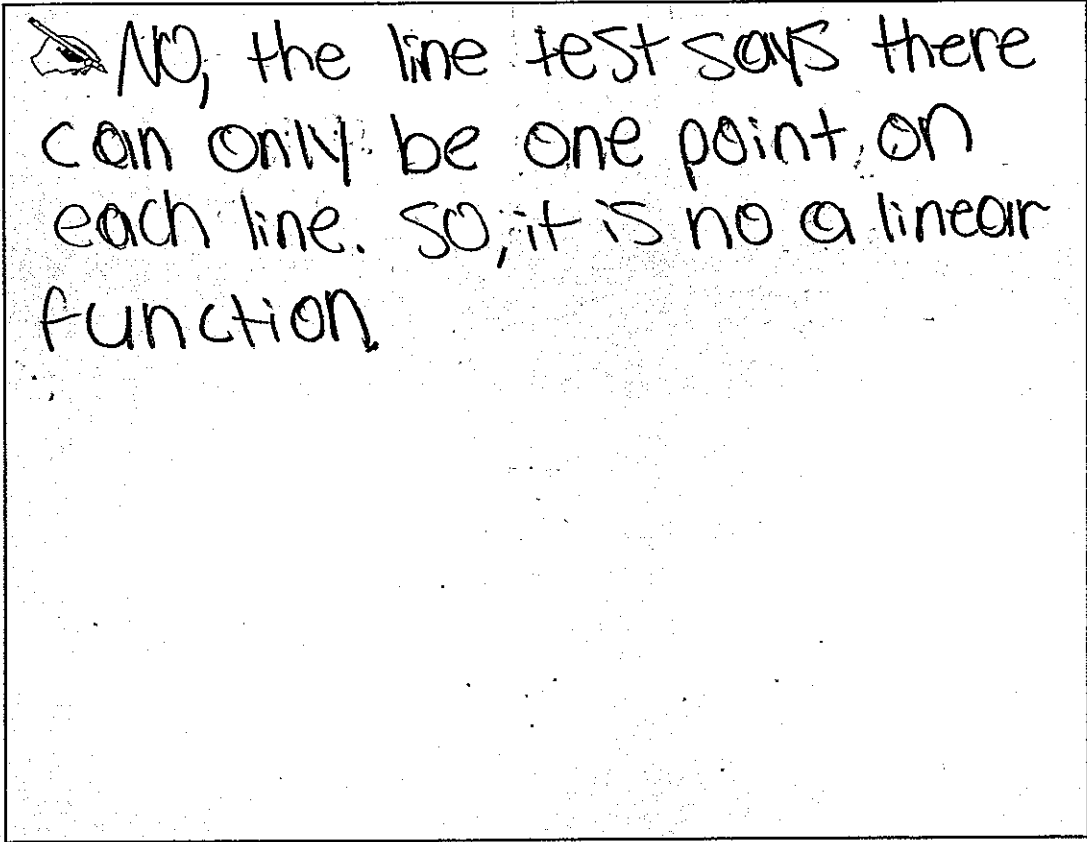 NO, the line test says there
can only be one point on
each line. so, it is no a linear
function.